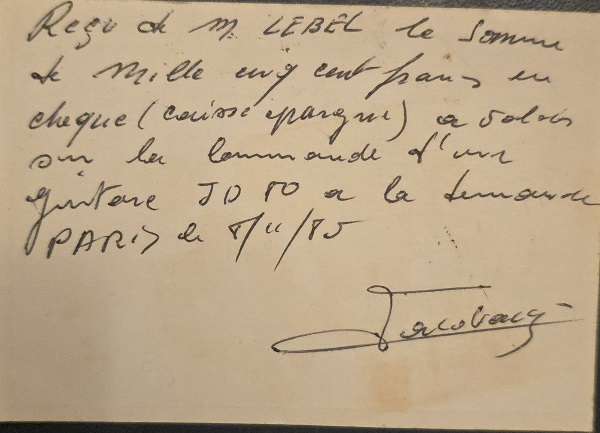 Reçu de M. LEBEL la somme
de Mille cinq cent francs en
cheque (caisse epargne) a valoir
sur la commande d'une
guitare JD a la demande
PARIS le 8/11/85
Jacobacci